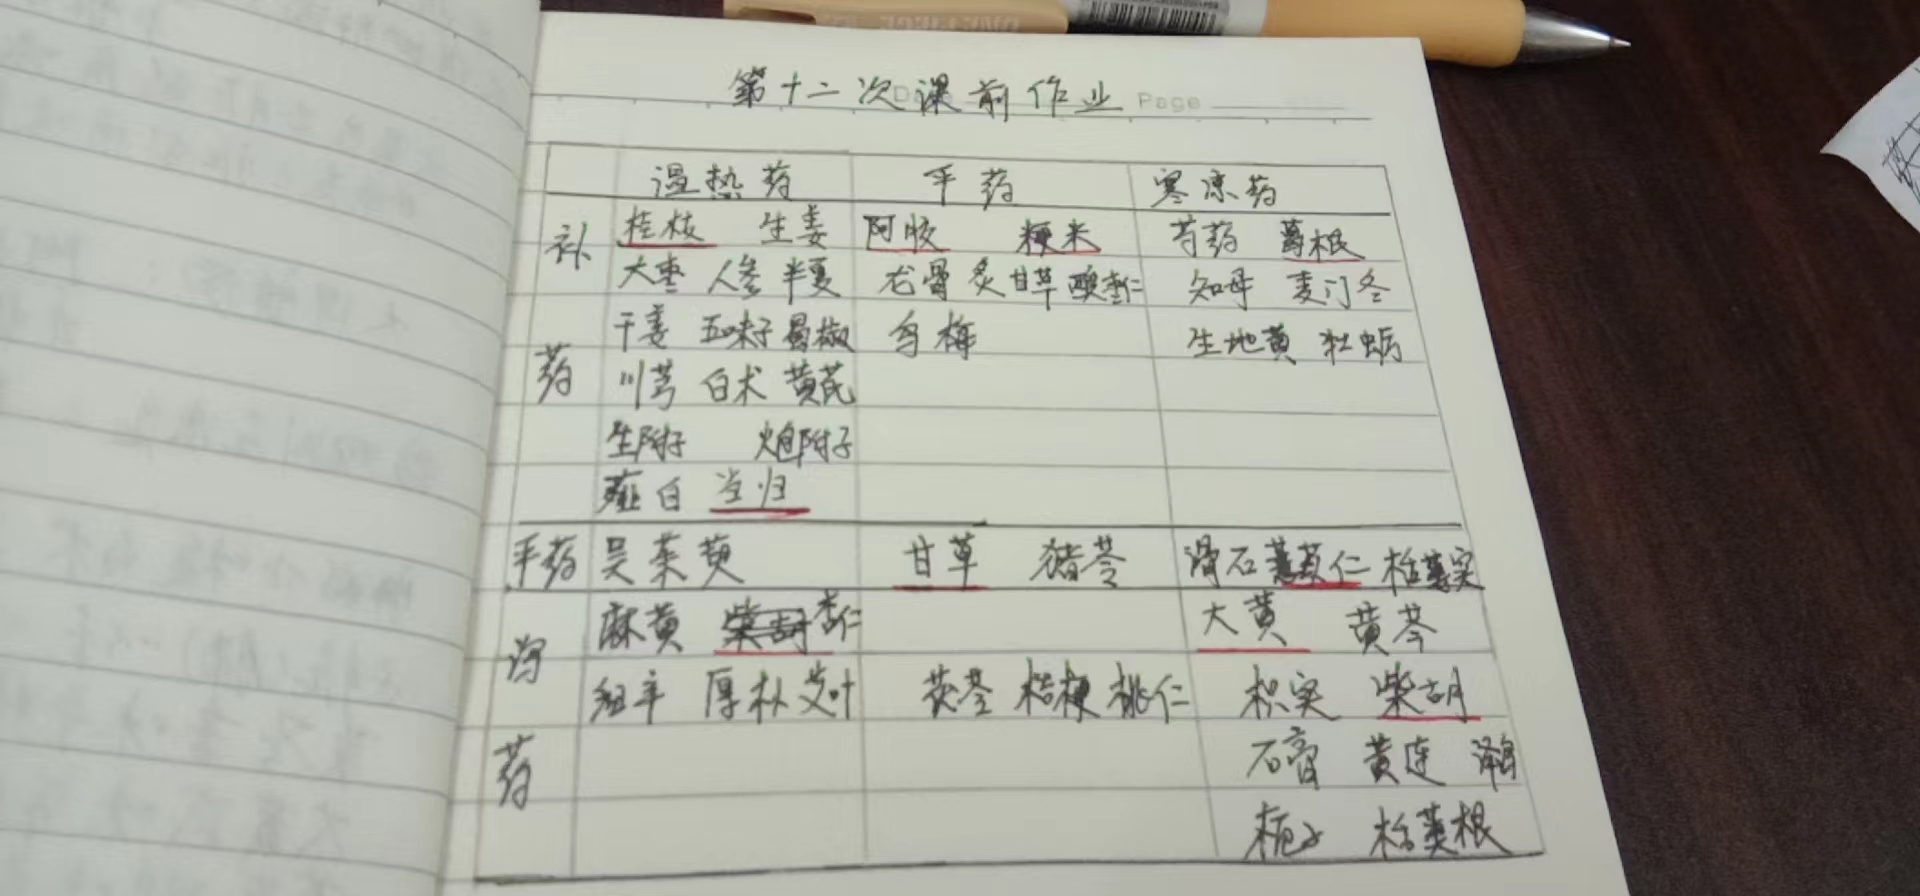 第十二次课前作业 Page
温热药 平药 寒凉药
补药
桂枝 生姜 阿胶 粳米 芍药 葛根
大枣 人参 半夏 龙骨 炙甘草 酸枣仁 知母 麦门冬
干姜 五味子 蜀椒 乌梅 生地黄 牡蛎
川芎 白术 黄芪
生附子 炮附子
薤白 当归
平药 吴茱萸 甘草 猪苓 滑石 薏苡仁 栝蒌实
泻药
麻黄 杏仁 大黄 黄芩
细辛 厚朴 艾叶 茯苓 桔梗 桃仁 枳实 柴胡
石膏 黄连 泽泻
栀子 栝蒌根